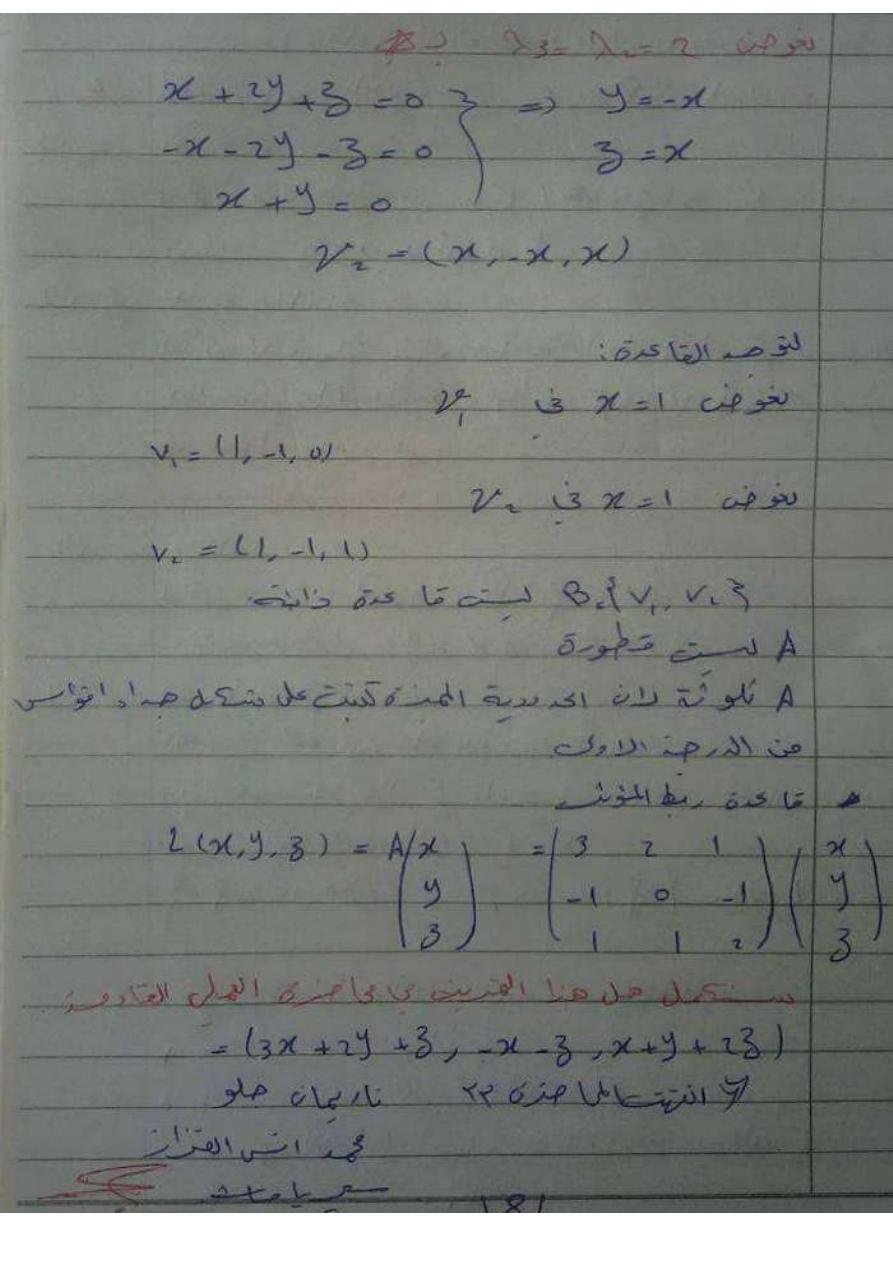 نعوض λ3 = λ2 = 2 بـ
x + 2y + z = 0 } ⇒ y = -x
-x - 2y - z = 0 z = x
x + y = 0
v2 = (x, -x, x)
القاعدة:
نعوض x = 1 في v1
v1 = (1, -1, 0)
نعوض x = 1 في v2
v2 = (1, -1, 1)
B = {v1, v2} ليست قاعدة ذاتية
A ليست قطورة
A ثلوثة لان الحدودية المميزة كتبت على شكل جداء اقواس
من الدرجة الاولى
* قاعدة ربط المؤثر
L(x, y, z) = A (x y z) = (3 2 1 / -1 0 -1 / 1 1 2) (x y z)
سنكمل حل هذا التمرين في محاضرة العملي القادمة
= (3x + 2y + z, -x - z, x + y + 2z)
انتهت المحاضرة ٢٣ ناريمان حلو
محمد انس القزاز